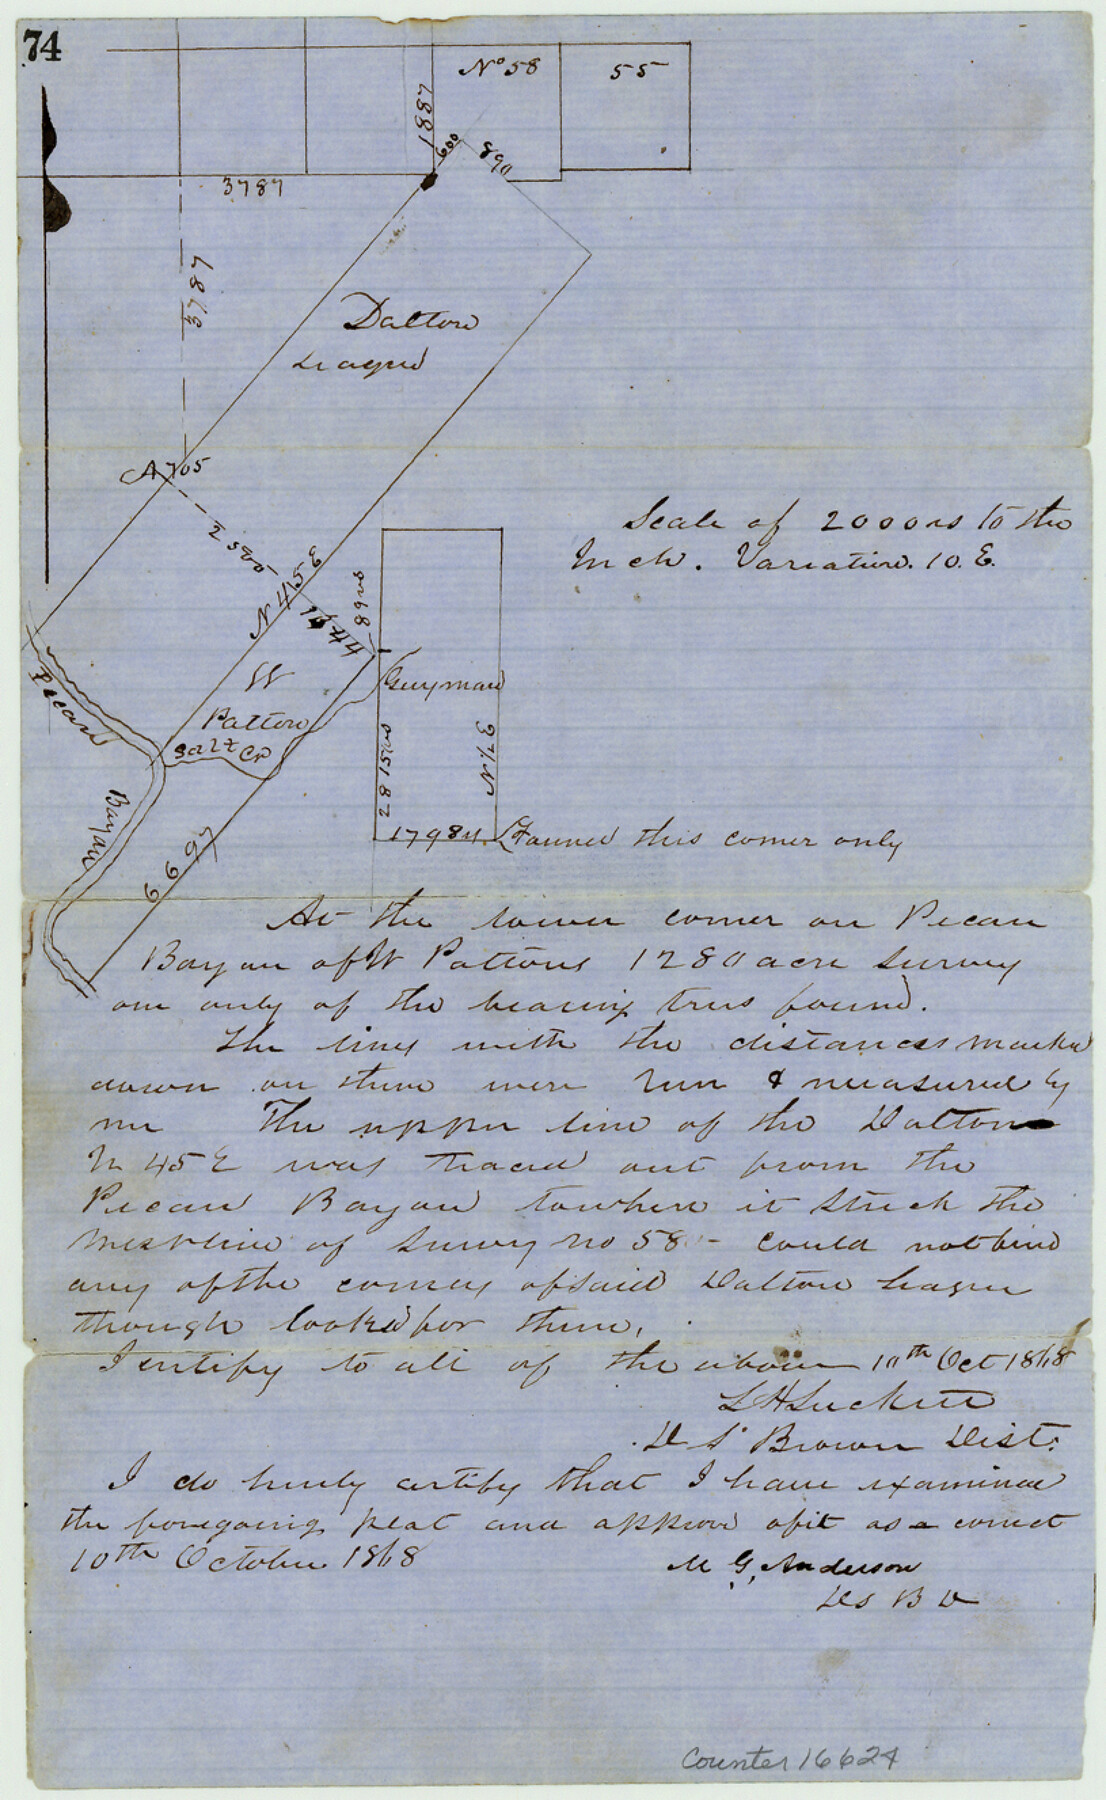 74
No 58
55
1887
600
890
3787
3787
Dalton
League
A 705
Scale of 2000 vs to the
Inch. Variation. 10. E.
2580
N 45 E
89 vs
W
Patton
Guyman
Salt Cr
Pecan
Bayou
2815 vs
N 1 E
1798 vs
Found this corner only
6697
At the lower corner on Pecan
Bayou of W Pattons 1280 acre survey
one only of the bearing trees found.
The lines with the distances marked
down on them were run & measured by
me The upper line of the Dalton
N 45 E was traced out from the
Pecan Bayou to where it struck the
West line of Survey no 58 - could not find
any of the corners of said Dalton League
though looked for them,
I certify to all of the above 10th Oct 1868
L H Luckett
D S Brown Dist.
I do hereby certify that I have examined
the foregoing plat and approve of it as correct
10th October 1868
M G. Anderson
DS B D
Counter 16624